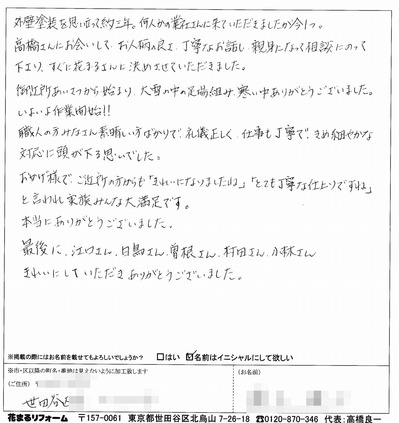 外壁塗装を思い立って約三年。何人かの業社さんに来ていただきましたが今1つ。
高橋さんにお会いして、お人柄の良さ、丁寧なお話し、親身になって相談にのって
下さり、すぐに花まるさんに決めさせていただきました。
御近所あいさつから始まり、大雪の中の足場組み、寒い中ありがとうございました。
いよいよ作業開始!!
職人の方みなさん素晴しい方ばかりで、礼儀正しく、仕事も丁寧で、きめ細やかな
対応に頭が下る思いでした。
おかげ様で、ご近所の方からも「きれいになりましたね」「とても丁寧な仕上りですね」
と言われ家族みんな大満足です。
本当にありがとうございました。
最後に、江口さん、白鳥さん、曽根さん、村田さん、小林さん
きれいにしていただきありがとうございました。
※掲載の際にはお名前を載せてもよろしいでしょうか? □はい ☑名前はイニシャルにして欲しい
※市・区以降の町名・番地は見えないように加工致します
(ご住所) 〒
(お名前)
世田谷区
花まるリフォーム 〒157-0061 東京都世田谷区北烏山7-26-18 ☎0120-870-346 代表:高橋良一